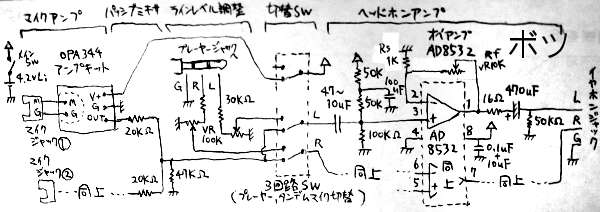 マイクアンプ
パッシブミキサ
ラインレベル調整
切替SW
ヘッドホンアンプ
オペアンプ
AD8532
ボツ
メイン
SW
4.2V Li
OPA344
アンプキット
プレーヤージャックへ
G R L
V+
M
G
M
G
OUT
マイク
ジャック①
20KΩ
マイク
ジャック②
同上
20KΩ
47KΩ
VR
100K
30KΩ
L
R
3回路SW
(プレーヤー、タンデムマイク切替)
47~
10uF
50K
50K
100
uF
100KΩ
Rs
1K
Rf
VR10K
2
3
1
4
8
AD
8532
0.1uF
+
10uF
16Ω
470uF
50KΩ
6
5
同上
7
同上
L
R
G
イヤホンジャック